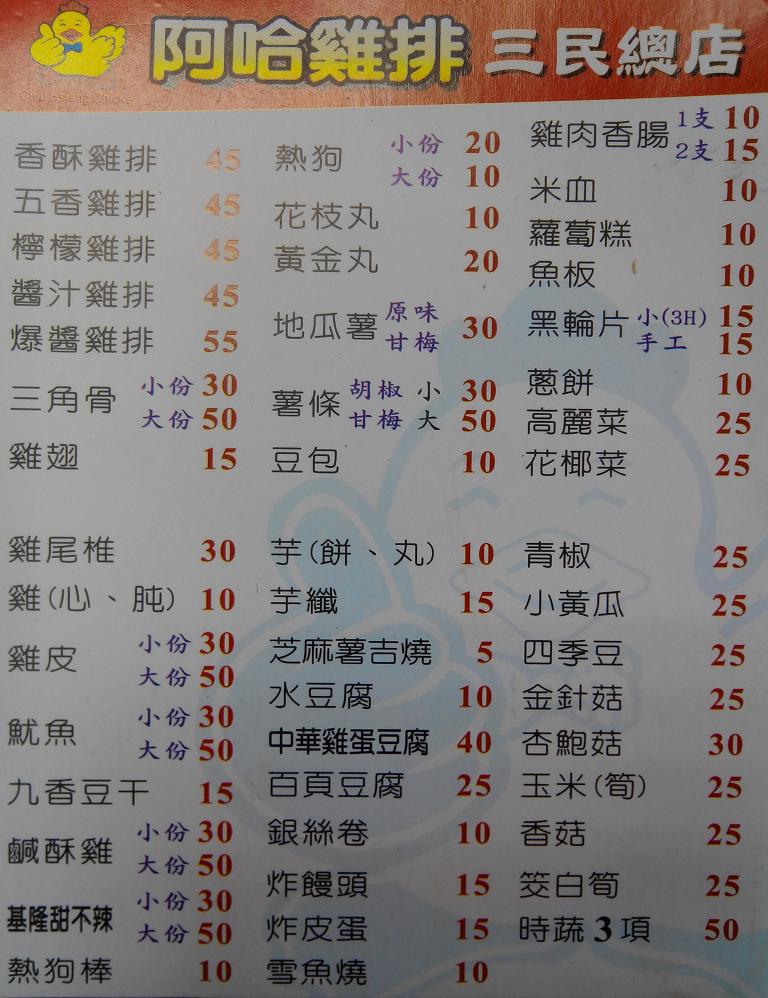 阿哈雞排 三民總店
香酥雞排 45
五香雞排 45
檸檬雞排 45
醬汁雞排 45
爆醬雞排 55
三角骨 小份 30
大份 50
雞翅 15
雞尾椎 30
雞(心、肫) 10
雞皮 小份 30
大份 50
魷魚 小份 30
大份 50
九香豆干 15
鹹酥雞 小份 30
大份 50
基隆甜不辣 小份 30
大份 50
熱狗棒 10
熱狗 小份 20
大份 10
花枝丸 10
黃金丸 20
地瓜薯 原味 甘梅 30
薯條 胡椒 小 30
甘梅 大 50
豆包 10
芋(餅、丸) 10
芋纖 15
芝麻薯吉燒 5
水豆腐 10
中華雞蛋豆腐 40
百頁豆腐 25
銀絲卷 10
炸饅頭 15
炸皮蛋 15
雪魚燒 10
雞肉香腸 1支 10
2支 15
米血 10
蘿蔔糕 10
魚板 10
黑輪片 小(3H) 15
手工 15
蔥餅 10
高麗菜 25
花椰菜 25
青椒 25
小黃瓜 25
四季豆 25
金針菇 25
杏鮑菇 30
玉米(筍) 25
香菇 25
筊白筍 25
時蔬3項 50